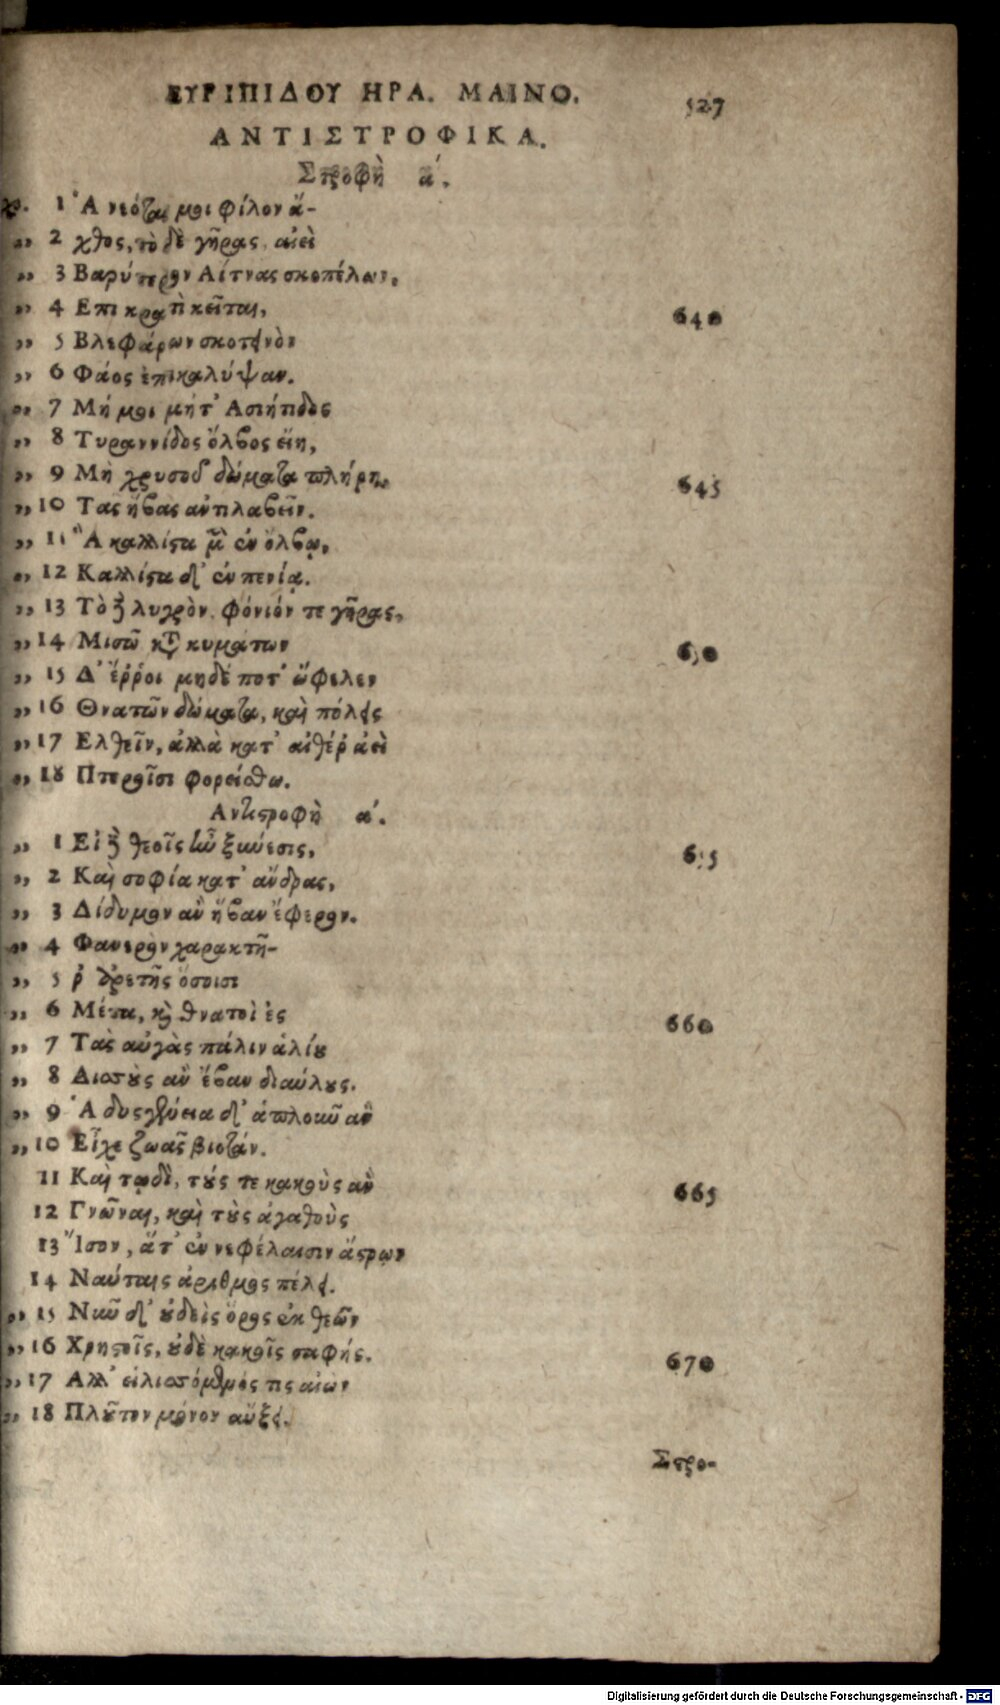 ΕΥΡΙΠΙΔΟΥ ΗΡΑ. ΜΑΙΝΟ. 527
ΑΝΤΙΣΤΡΟΦΙΚΑ.
Στροφὴ α΄.
χο. 1 Ἁ νεότας μοι φίλον ἄ-
„ 2 χθος, τὸ δὲ γῆρας αἰεὶ
„ 3 Βαρύτερον Αἴτνας σκοπέλων,
„ 4 Επι κρατὶ κεῖται, 640
„ 5 Βλεφάρων σκοτεινὸν
„ 6 Φάος ἐπικαλύψαν.
„ 7 Μή μοι μήτ' Ασιήτιδος
„ 8 Τυραννίδος ὄλβος εἴη,
„ 9 Μὴ χρυσοῦ δώματα πλήρη, 645
„ 10 Τᾶς ἥβας ἀντιλαβεῖν.
„ 11 Ἃ καλλίστα μὲν ἐν ὄλβῳ,
„ 12 Καλλίστα δ' ἐν πενίᾳ.
„ 13 Τὸ δὲ λυγρὸν φόνιόν τε γῆρας,
„ 14 Μισῶ κατὰ κυμάτων 650
„ 15 Δ' ἔῤῥοι μηδέ ποτ' ὤφελεν
„ 16 Θνατῶν δώματα, καὶ πόλεις
„ 17 Ελθεῖν, ἀλλὰ κατ' αἰθέρ' ἀεὶ
„ 18 Πτεροῖσι φορείσθω.
Αντιστροφὴ α΄.
„ 1 Εἰ δὲ θεοῖς ἦν ξυύεσις, 655
„ 2 Καὶ σοφία κατ' ἄνδρας,
„ 3 Δίδυμον ἂν ἥβαν ἔφερον.
„ 4 Φανερὸν χαρακτῆ-
„ 5 ρ' ἀρετῆς ὅσοισι
„ 6 Μέτα, καὶ θνατοὶ ἐς 660
„ 7 Τὰς αὐγὰς πάλιν ἁλίου
„ 8 Δισσοὺς ἂν ἔβαν διαύλους.
„ 9 Ἁ δυσγένεια δ' ἁπλοῦν ἂν
„ 10 Εἶχε ζωᾶς βιοτάν.
11 Καὶ τῳδὲ, τούς τε κακοὺς ἂν 665
12 Γνῶναι, καὶ τοὺς ἀγαθοὺς
13 Ἴσον, ἅτ' ἐν νεφέλαισιν ἄστρων
14 Ναύταις ἀριθμὸς πέλει.
„ 15 Νῦν δ' οὐδεὶς ὅρος ἐκ θεῶν
„ 16 Χρηστοῖς, οὐδὲ κακοῖς σαφής. 670
„ 17 Αλλ' εἱλισσόμενος τις αἰὼν
„ 18 Πλοῦτον μόνον αὔξει.
Στρο-
Digitalisierung gefördert durch die Deutsche Forschungsgemeinschaft - DFG